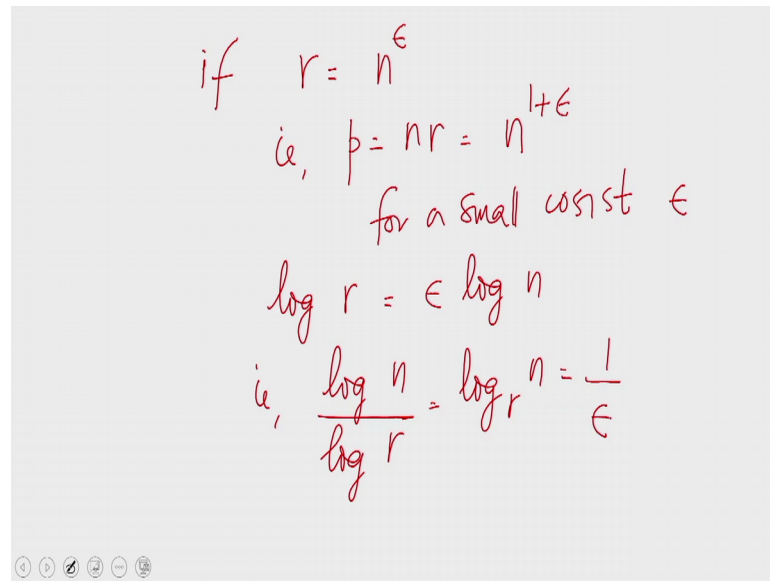 if r = n^ϵ
ie, p = nr = n^{1+ϵ}
for a small const ϵ
log r = ϵ log n
ie, \frac{log n}{log r} = log_r n = \frac{1}{ϵ}